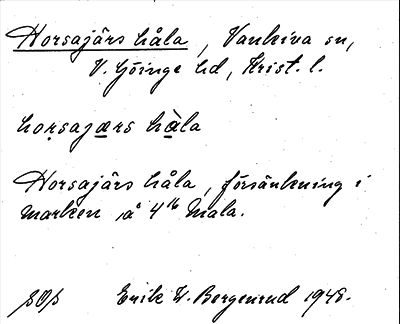 Horsajärs håla, Vankiva sn,
V. Göinge hd, Krist. l.
horsajærs hàla
Horsajärs håla, försänkning i
marken å 4¹⁶ Mala.
Erik W. Bergenrud 1948.